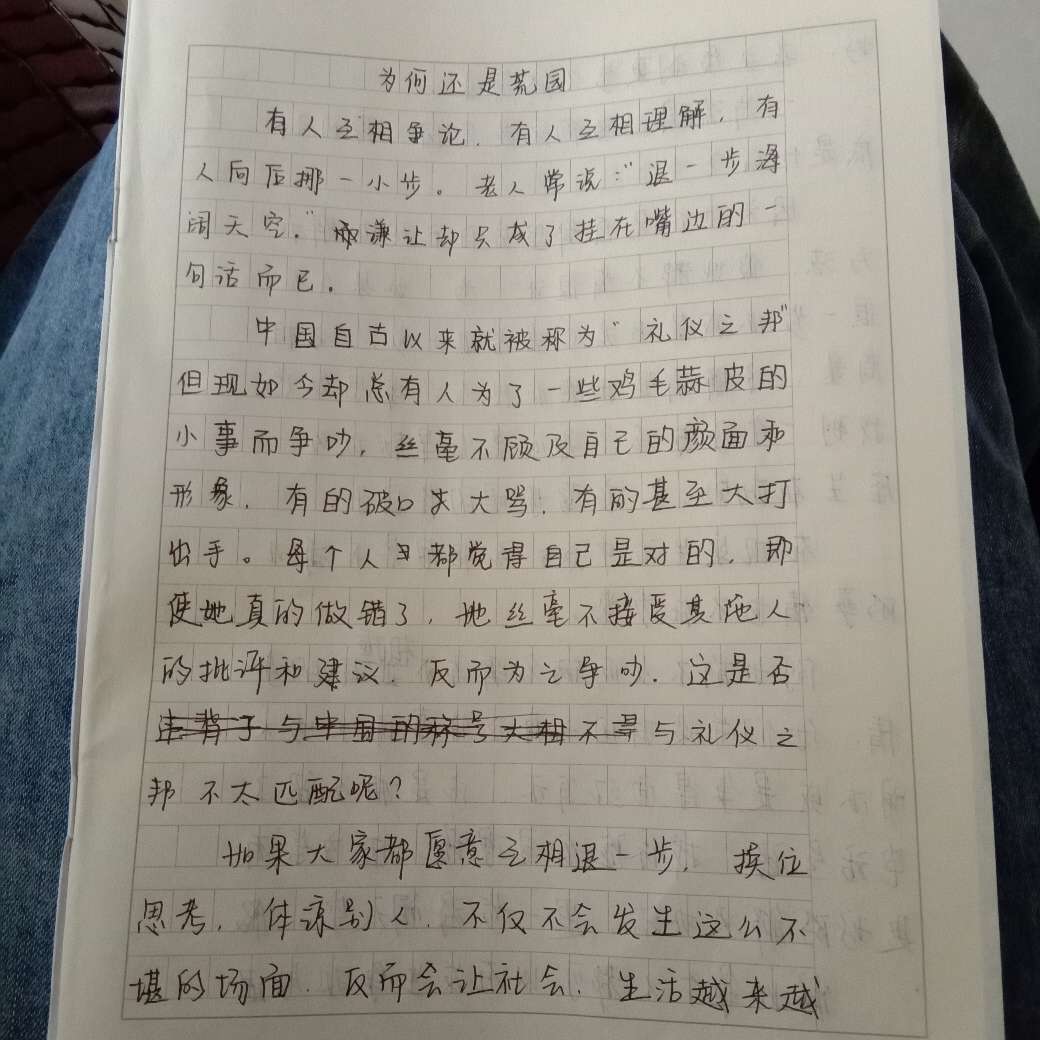 为何还是荒园
有人互相争论，有人互相理解，有
人向后挪一小步。老人常说："退一步海
阔天空。"而谦让却只成了挂在嘴边的一
句话而已。
中国自古以来就被称为"礼仪之邦"
但现如今却总有人为了一些鸡毛蒜皮的
小事而争吵，丝毫不顾及自己的颜面和
形象，有的破口大骂，有的甚至大打
出手。每个人都觉得自己是对的，即
使她真的做错了，她丝毫不接受其他人
的批评和建议，反而为之争吵，这是否
违背了与中国的称号大相不是与礼仪之
邦不太匹配呢？
如果大家都愿意互相退一步，换位
思考，体谅别人，不仅不会发生这么不
堪的场面，反而会让社会，生活越来越